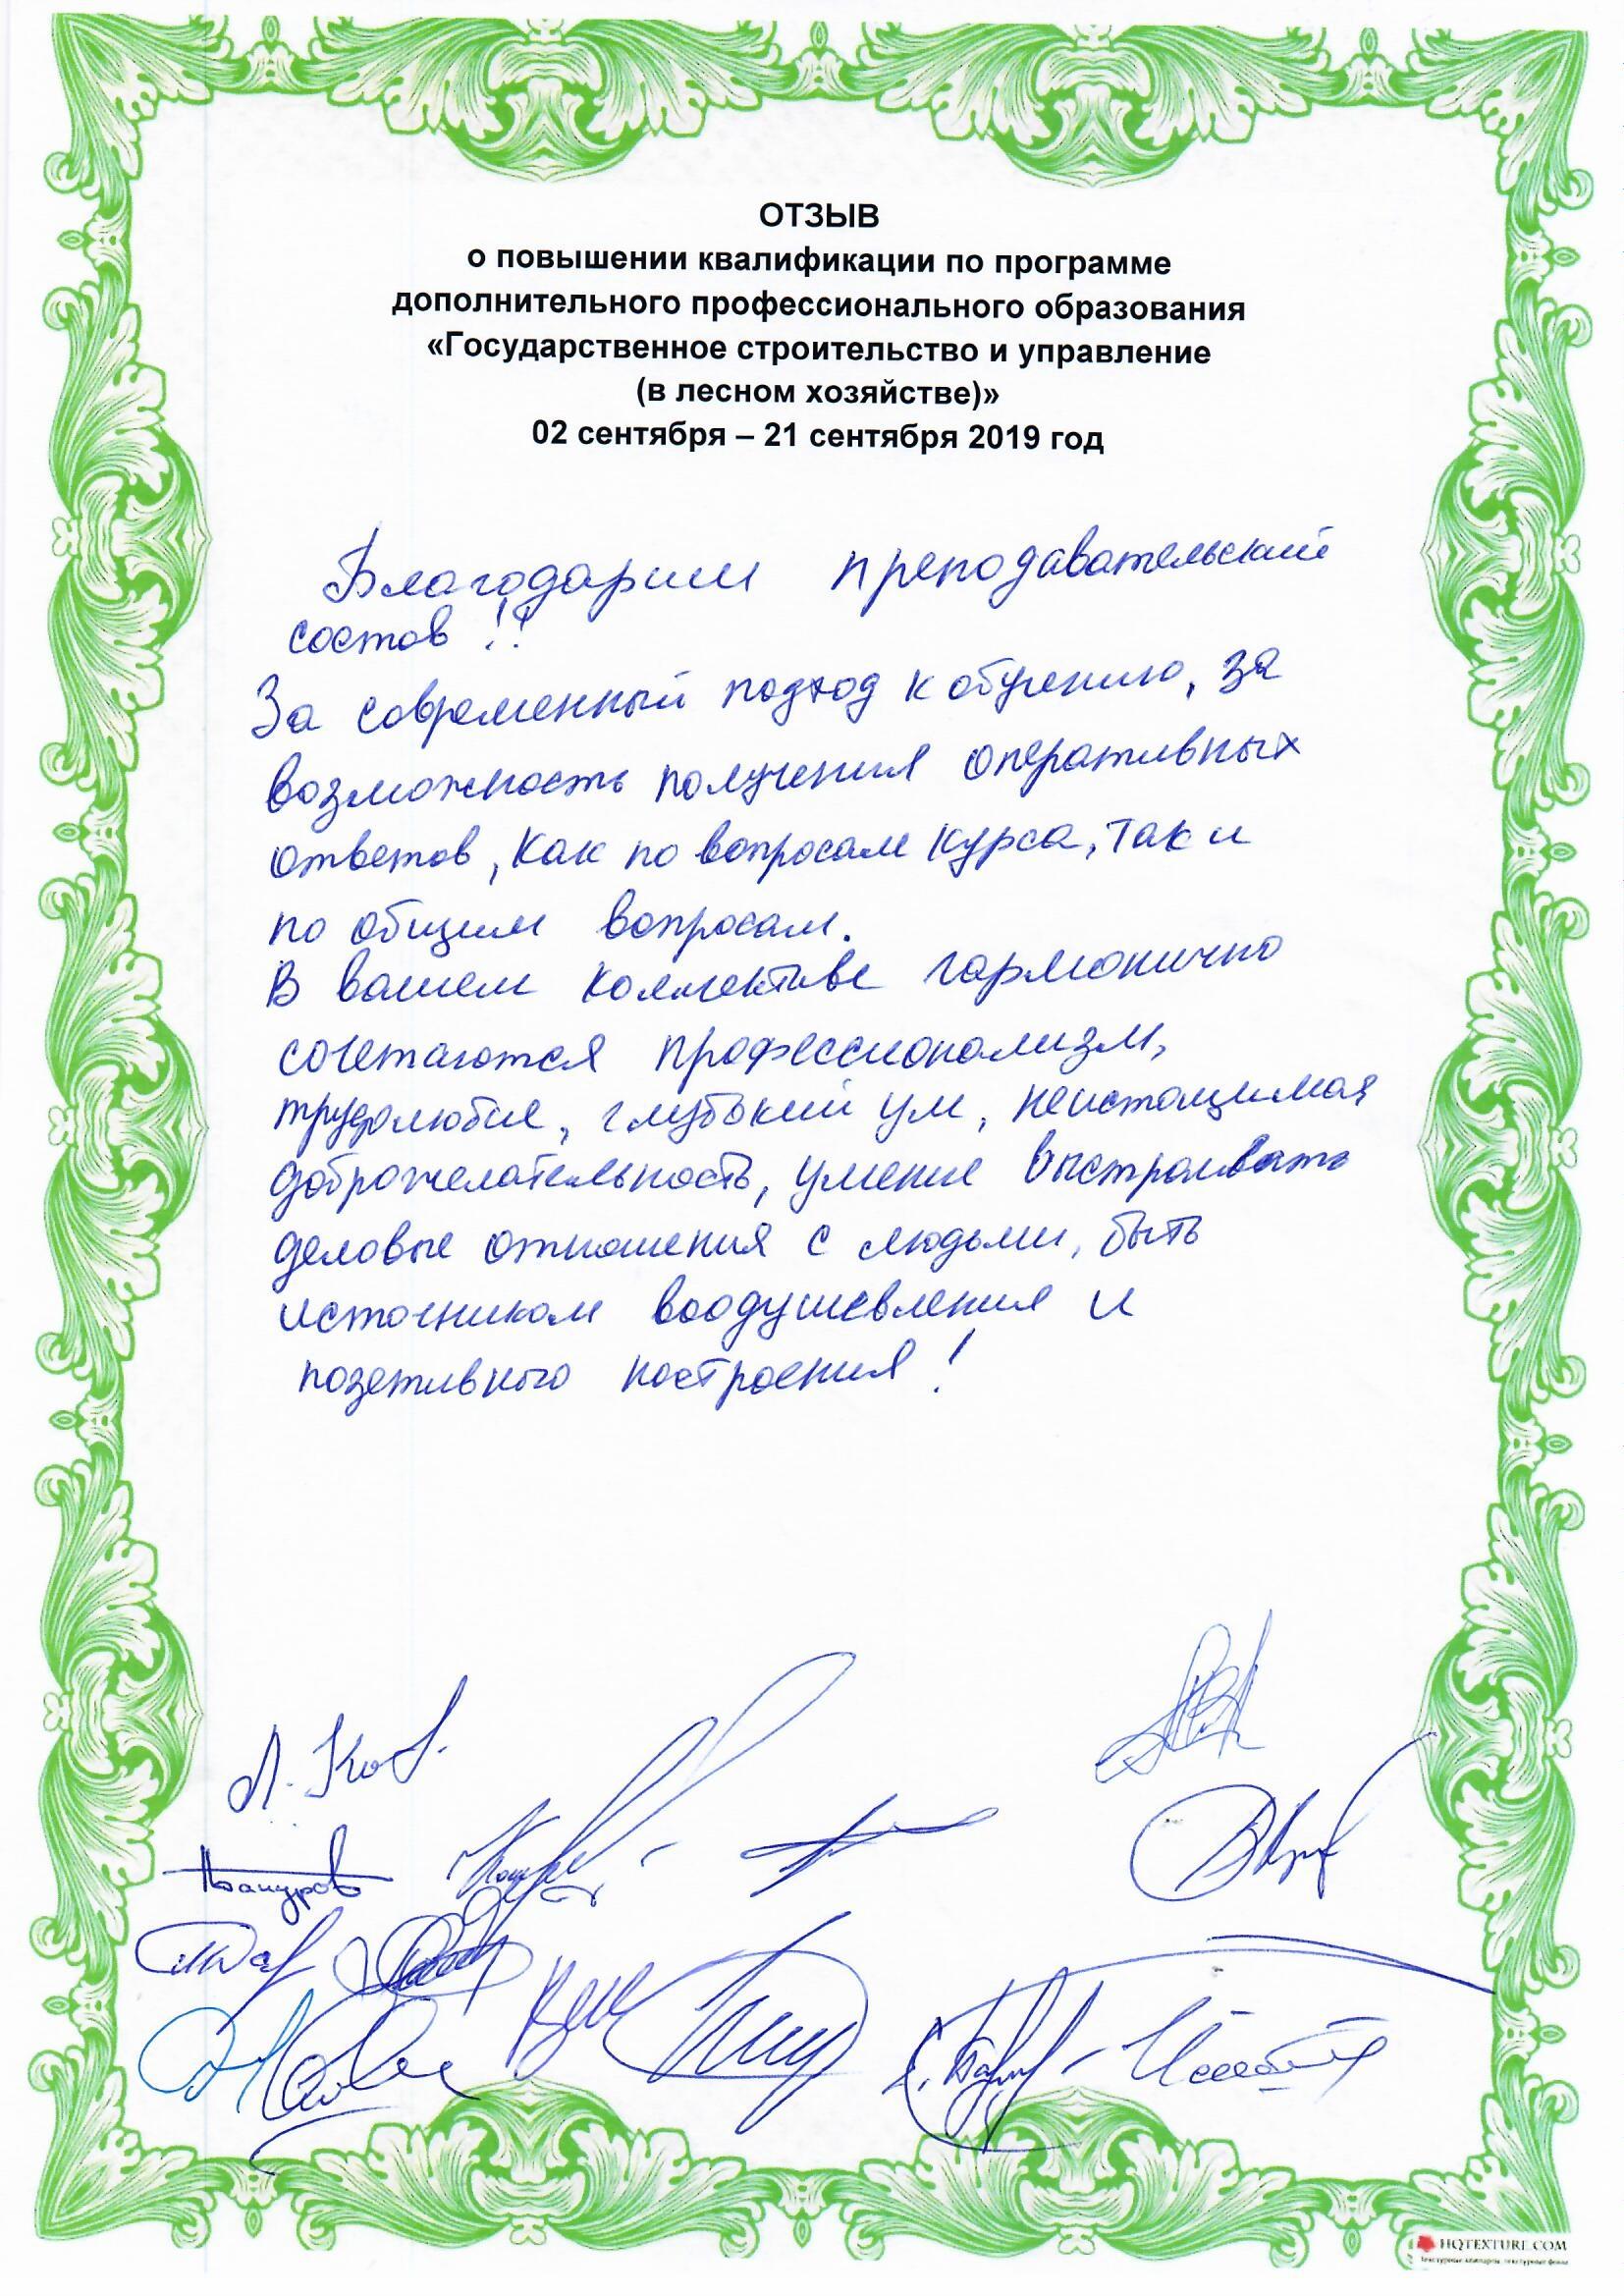 ОТЗЫВ
о повышении квалификации по программе
дополнительного профессионального образования
«Государственное строительство и управление
(в лесном хозяйстве)»
02 сентября – 21 сентября 2019 год
Благодарим преподавательский
состав !!
За современный подход к обучению, за
возможность получения оперативных
ответов, как по вопросам курса, так и
по общим вопросам.
В вашем коллективе гармонично
сочетаются профессионализм,
трудолюбие, глубокий ум, неистощимая
доброжелательность, умение выстраивать
деловые отношения с людьми, быть
источником воодушевления и
позетивного настроения!
HQTEXTURE.COM